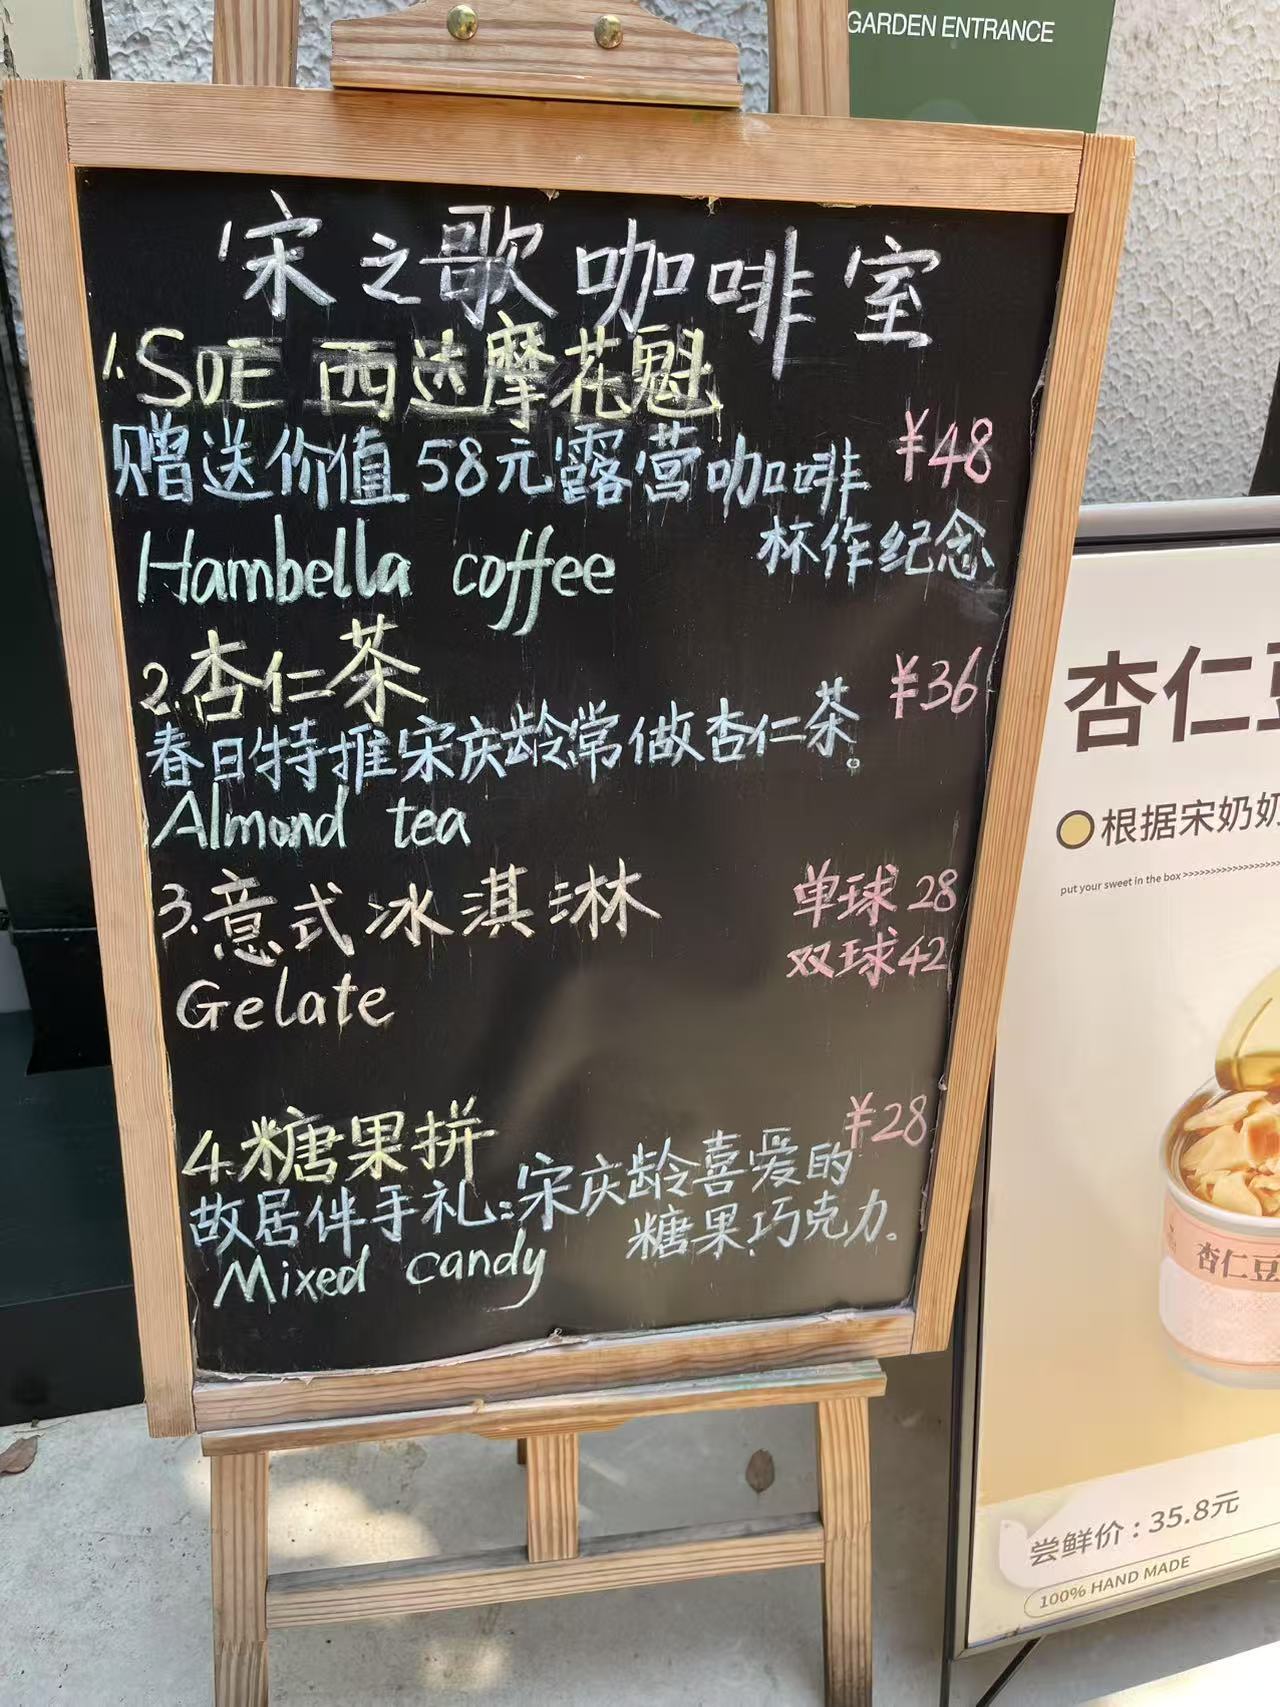 GARDEN ENTRANCE
宋之歌咖啡室
1.SOE 西达摩花魁
赠送价值58元露营咖啡 ¥48
杯作纪念
Hambella coffee
2.杏仁茶 ¥36
春日特推宋庆龄常做杏仁茶。
Almond tea
3.意式冰淇淋 单球28
双球42
Gelate
4.糖果拼 ¥28
故居伴手礼:宋庆龄喜爱的
糖果巧克力。
Mixed candy
杏仁豆
根据宋奶奶
put your sweet in the box >>>>>>>>>>>>>>>>>>>
杏仁豆
尝鲜价:35.8元
100% HAND MADE